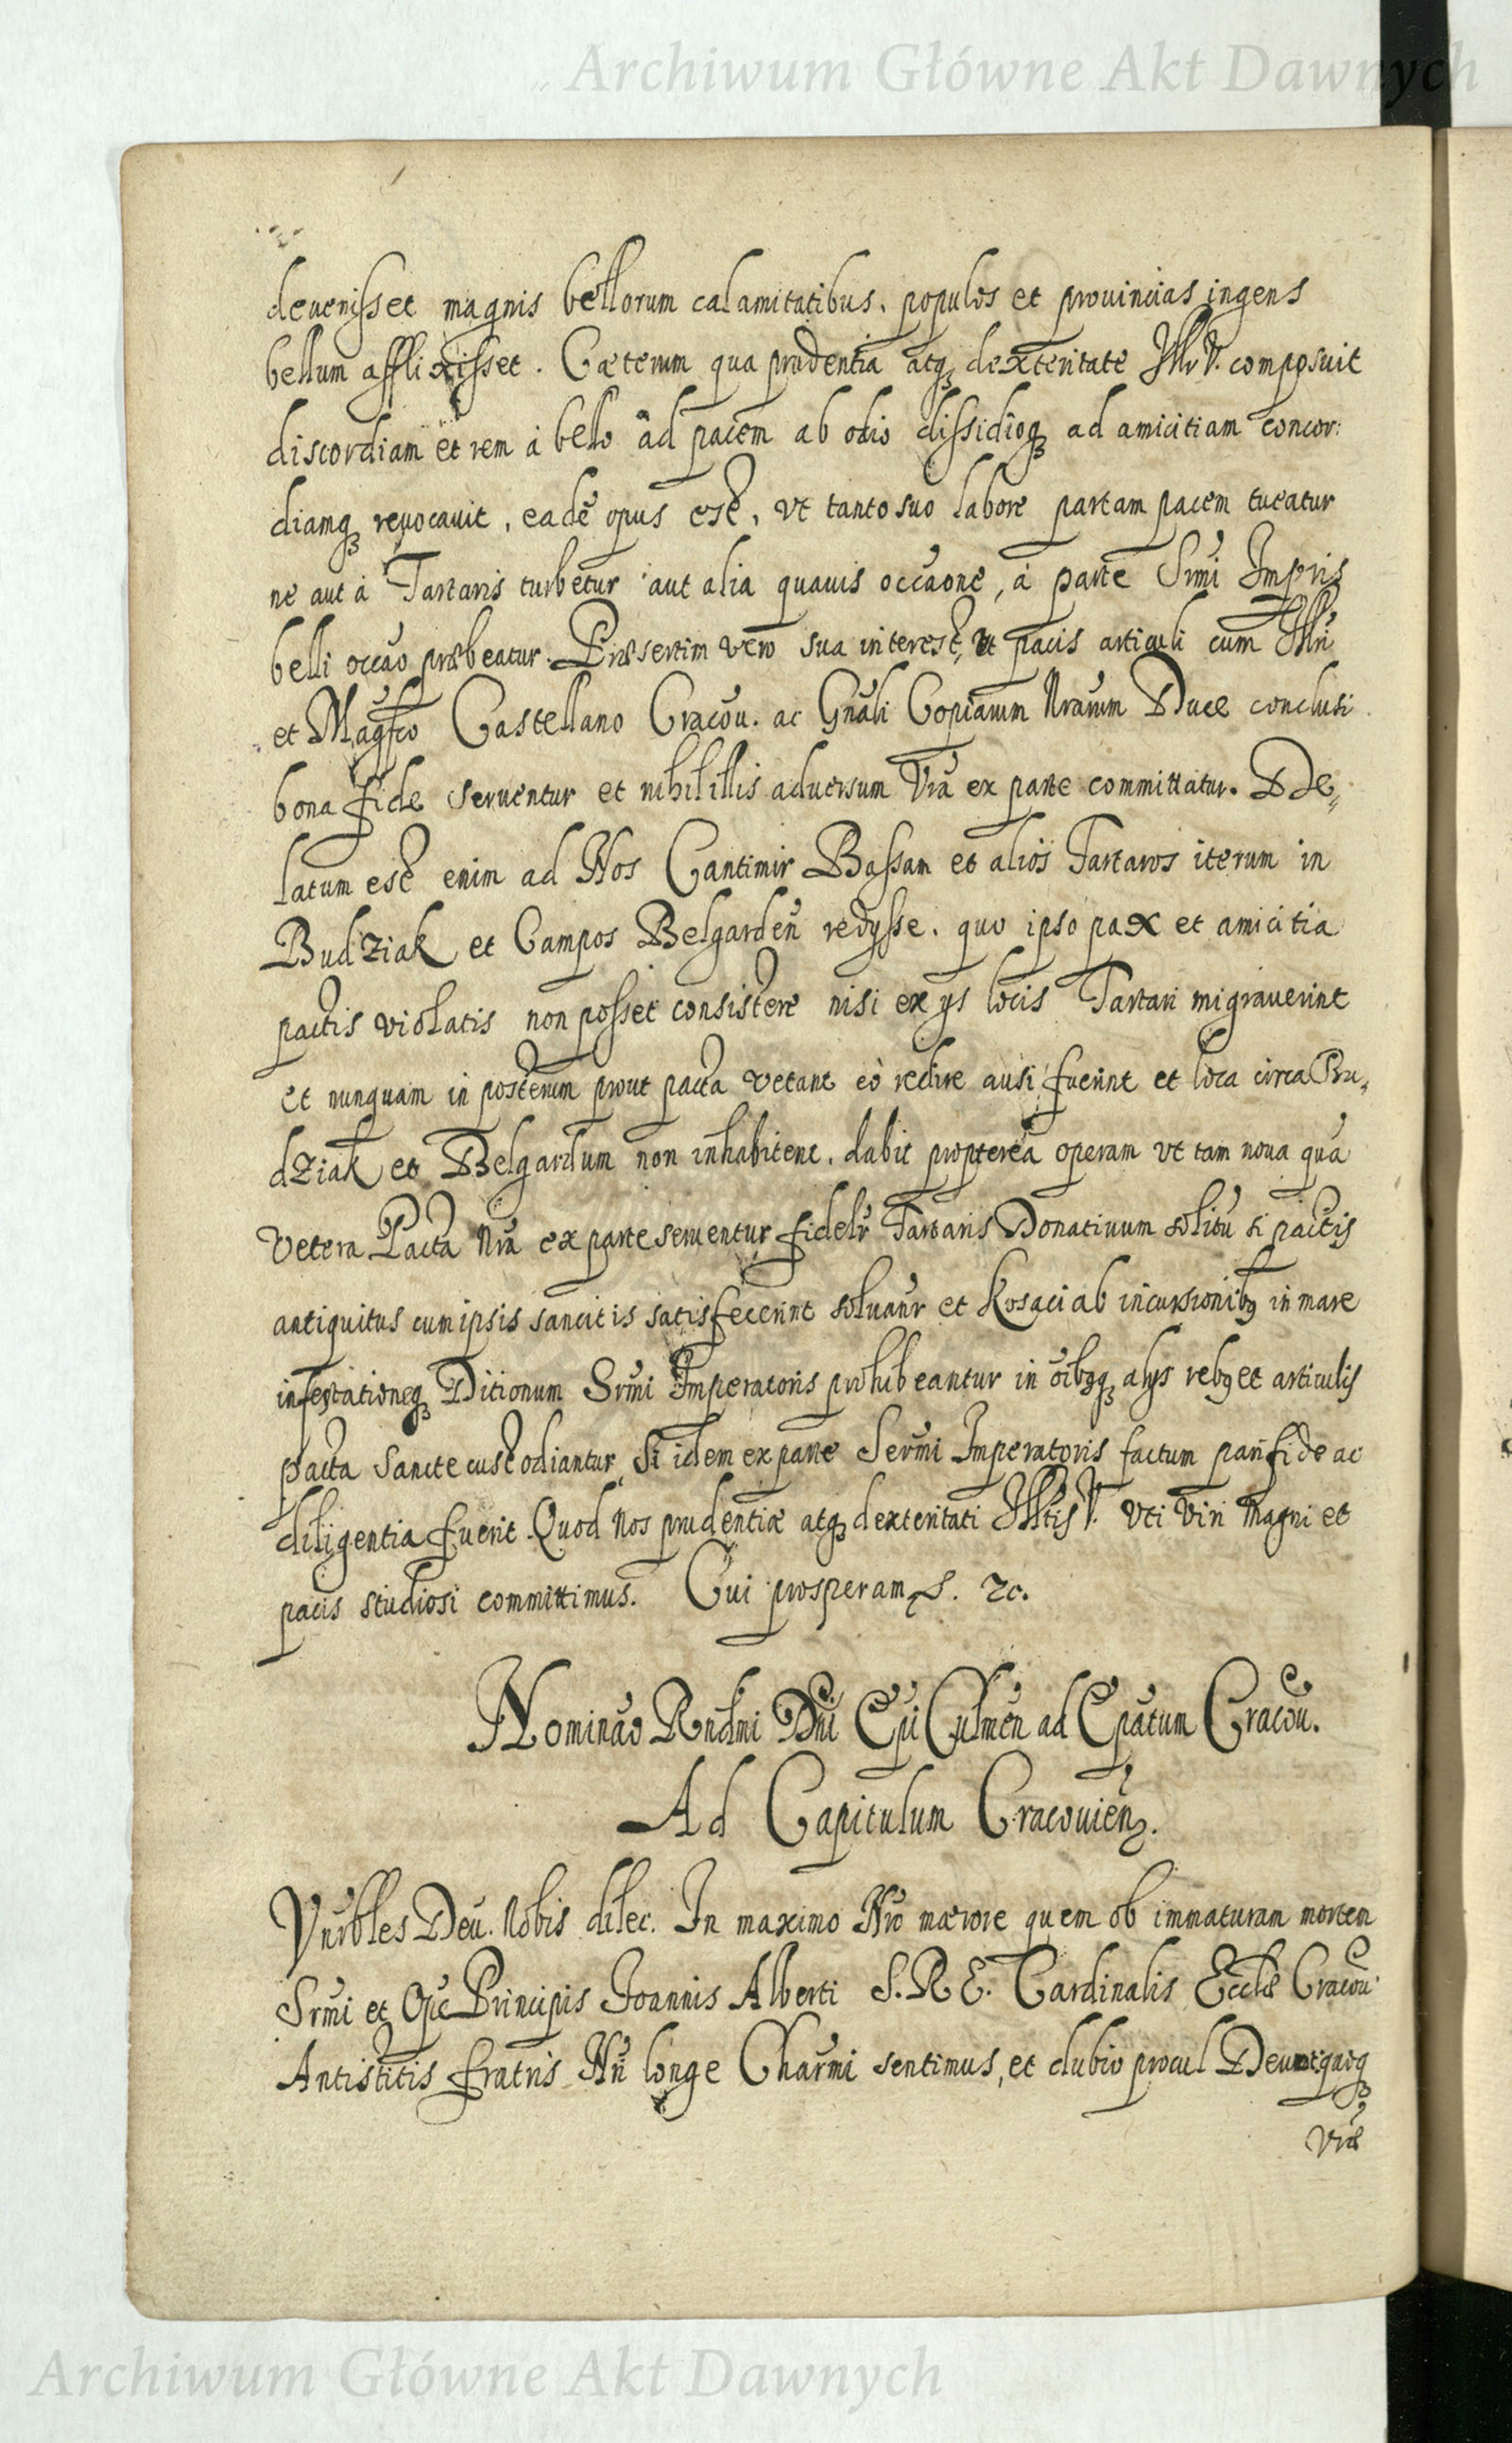 Archiwum Główne Akt Dawnych
deuenisset magnis bellorum calamitatibus, populos et prouincias ingens
bellum afflixisset. Cæterum qua prudentia atq3 dexteritate Illr V. composuit
discordiam et rem à bello ad pacem ab odio dissidioq3 ad amicitiam concor:
diamq3 reuocauit, eadē opus est, vt tanto suo labore partam pacem tueatur
ne aut à Tartaris turbetur aut alia quauis occaone, à parte Srmi Impris
belli occao præbeatur. Præsertim vero sua interest, ut pacis articuli cum Illri
et Magfco Castellano Cracou. ac Gnali Copiarum Nrarum Duce conclusi
bona fide seruentur et nihil illis aduersum Vra ex parte committatur. De„
latum est enim ad Nos Cantimir Bassam et alios Tartaros iterum in
Budziak et Campos Belgarden redysse, quo ipso pax et amicitia
pactis violatis non posset consistere nisi ex ys locis Tartari migrauerint
et nunquam in posterum prout pacta vetant eò redire ausi fuerint et loca circa Bu„
dziak et Belgardum non inhabitent, dabit propterea operam vt tam noua qua
vetera Pacta Nra ex parte seruentur fidelr Tartaris Donatiuum solitū si pactis
antiquitus cum ipsis sancitis satisfecerint soluatur et Kosaci ab incursionib9 in mare
infestationeq3 Ditionum Srmi Imperatoris prohibeantur in oib9q3 alys reb9 et articulis
pacta sancte custodiantur, Si idem ex parte Sermi Imperatoris factum pari fide ac
diligentia fuerit. Quod Nos prudentiæ atq3 dexteritati Illtis V. vti viri magni et
pacis studiosi committimus. Cui prosperam S. 2c.
Nominao Rndmi Dni Epi Culmen ad Epatum Cracou.
Ad Capitulum Cracouien.
Vnrbles Deu. Nobis dilec. In maximo Nro mærore quem ob immaturam mortem
Srmi et Principis Joannis Alberti S. R. E. Cardinalis Eccle Cracou
Antistitis fratris Nri longe Charmi sentimus, et dubio procul
Vræ
Archiwum Główne Akt Dawnych